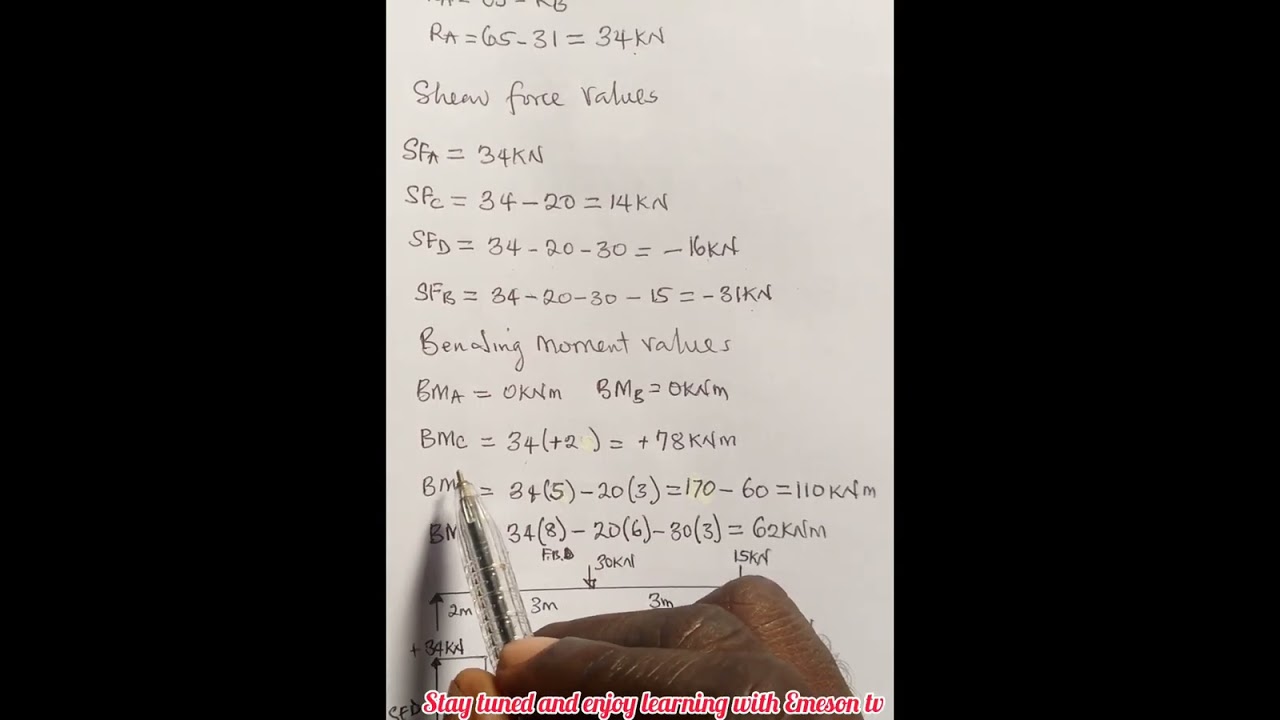 RA = 65 - RB
RA = 65 - 31 = 34KN
Shear force values
SFA = 34KN
SFC = 34 - 20 = 14KN
SFD = 34 - 20 - 30 = -16KN
SFB = 34 - 20 - 30 - 15 = -31KN
Bending moment values
BMA = 0KNm BMB = 0KNm
BMC = 34(+2 ) = +78KNm
BM = 34(5) - 20(3) = 170 - 60 = 110KNm
BM 34(8) - 20(6) - 30(3) = 62KNm
F.B.D 30KN 15KN
2m 3m 3m
+34KN
SFD
Stay tuned and enjoy learning with Emeson tv